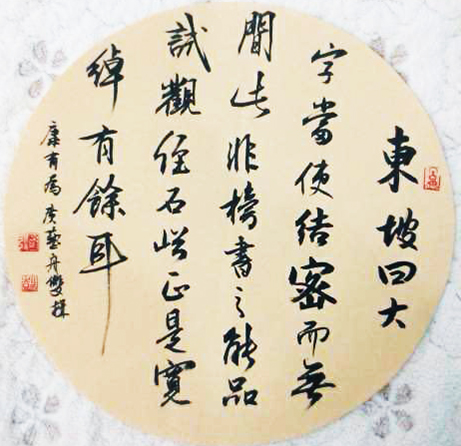 東坡曰大
字當使结密而無
間此非榜書之能品
試觀經石峪正是寬
綽有餘耳
康有為廣藝舟雙楫